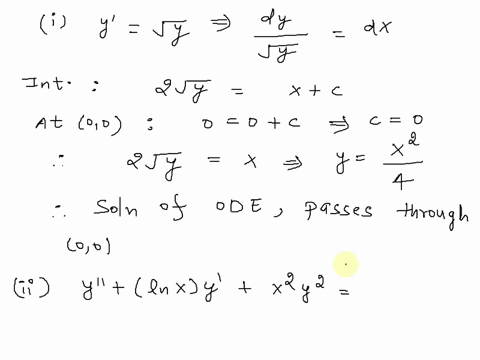 (i) y' = √y ⇒ dy/√y = dx
Int. : 2√y = x + c
At (0,0) : 0 = 0 + c ⇒ c = 0
∴ 2√y = x ⇒ y = x²/4
∴ Soln of ODE, passes through
(0,0)
(ii) y'' + (ln x) y' + x² y² =